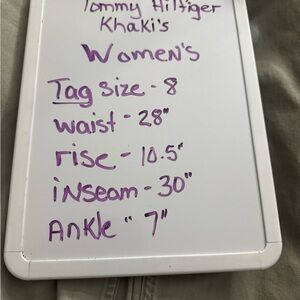 Tommy Hilfiger
Khaki's
Women's
Tag size - 8
waist - 28"
rise - 10.5"
inseam - 30"
Ankle " 7"